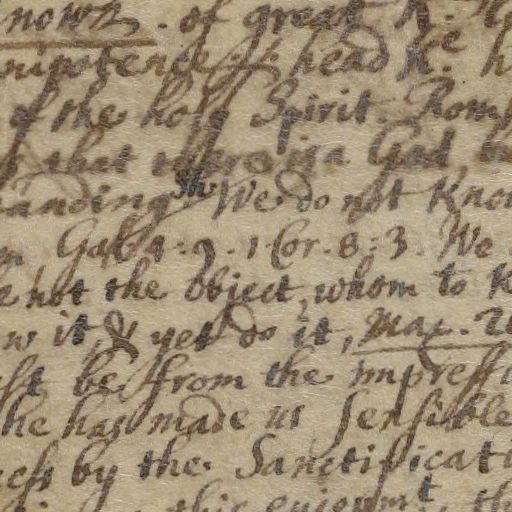 nows . of great
nipotence of head K.e h
of the holy Spirit. Rom
that there is a God,
anding We do not Know
Gal. 4. 9. 1 Cor. 8. 3. We
not the object, whom to K
w it, & yet do it, may.
st be from the impressi
he has made us sensible
ess by the Sanctificati
this enjoymt, th